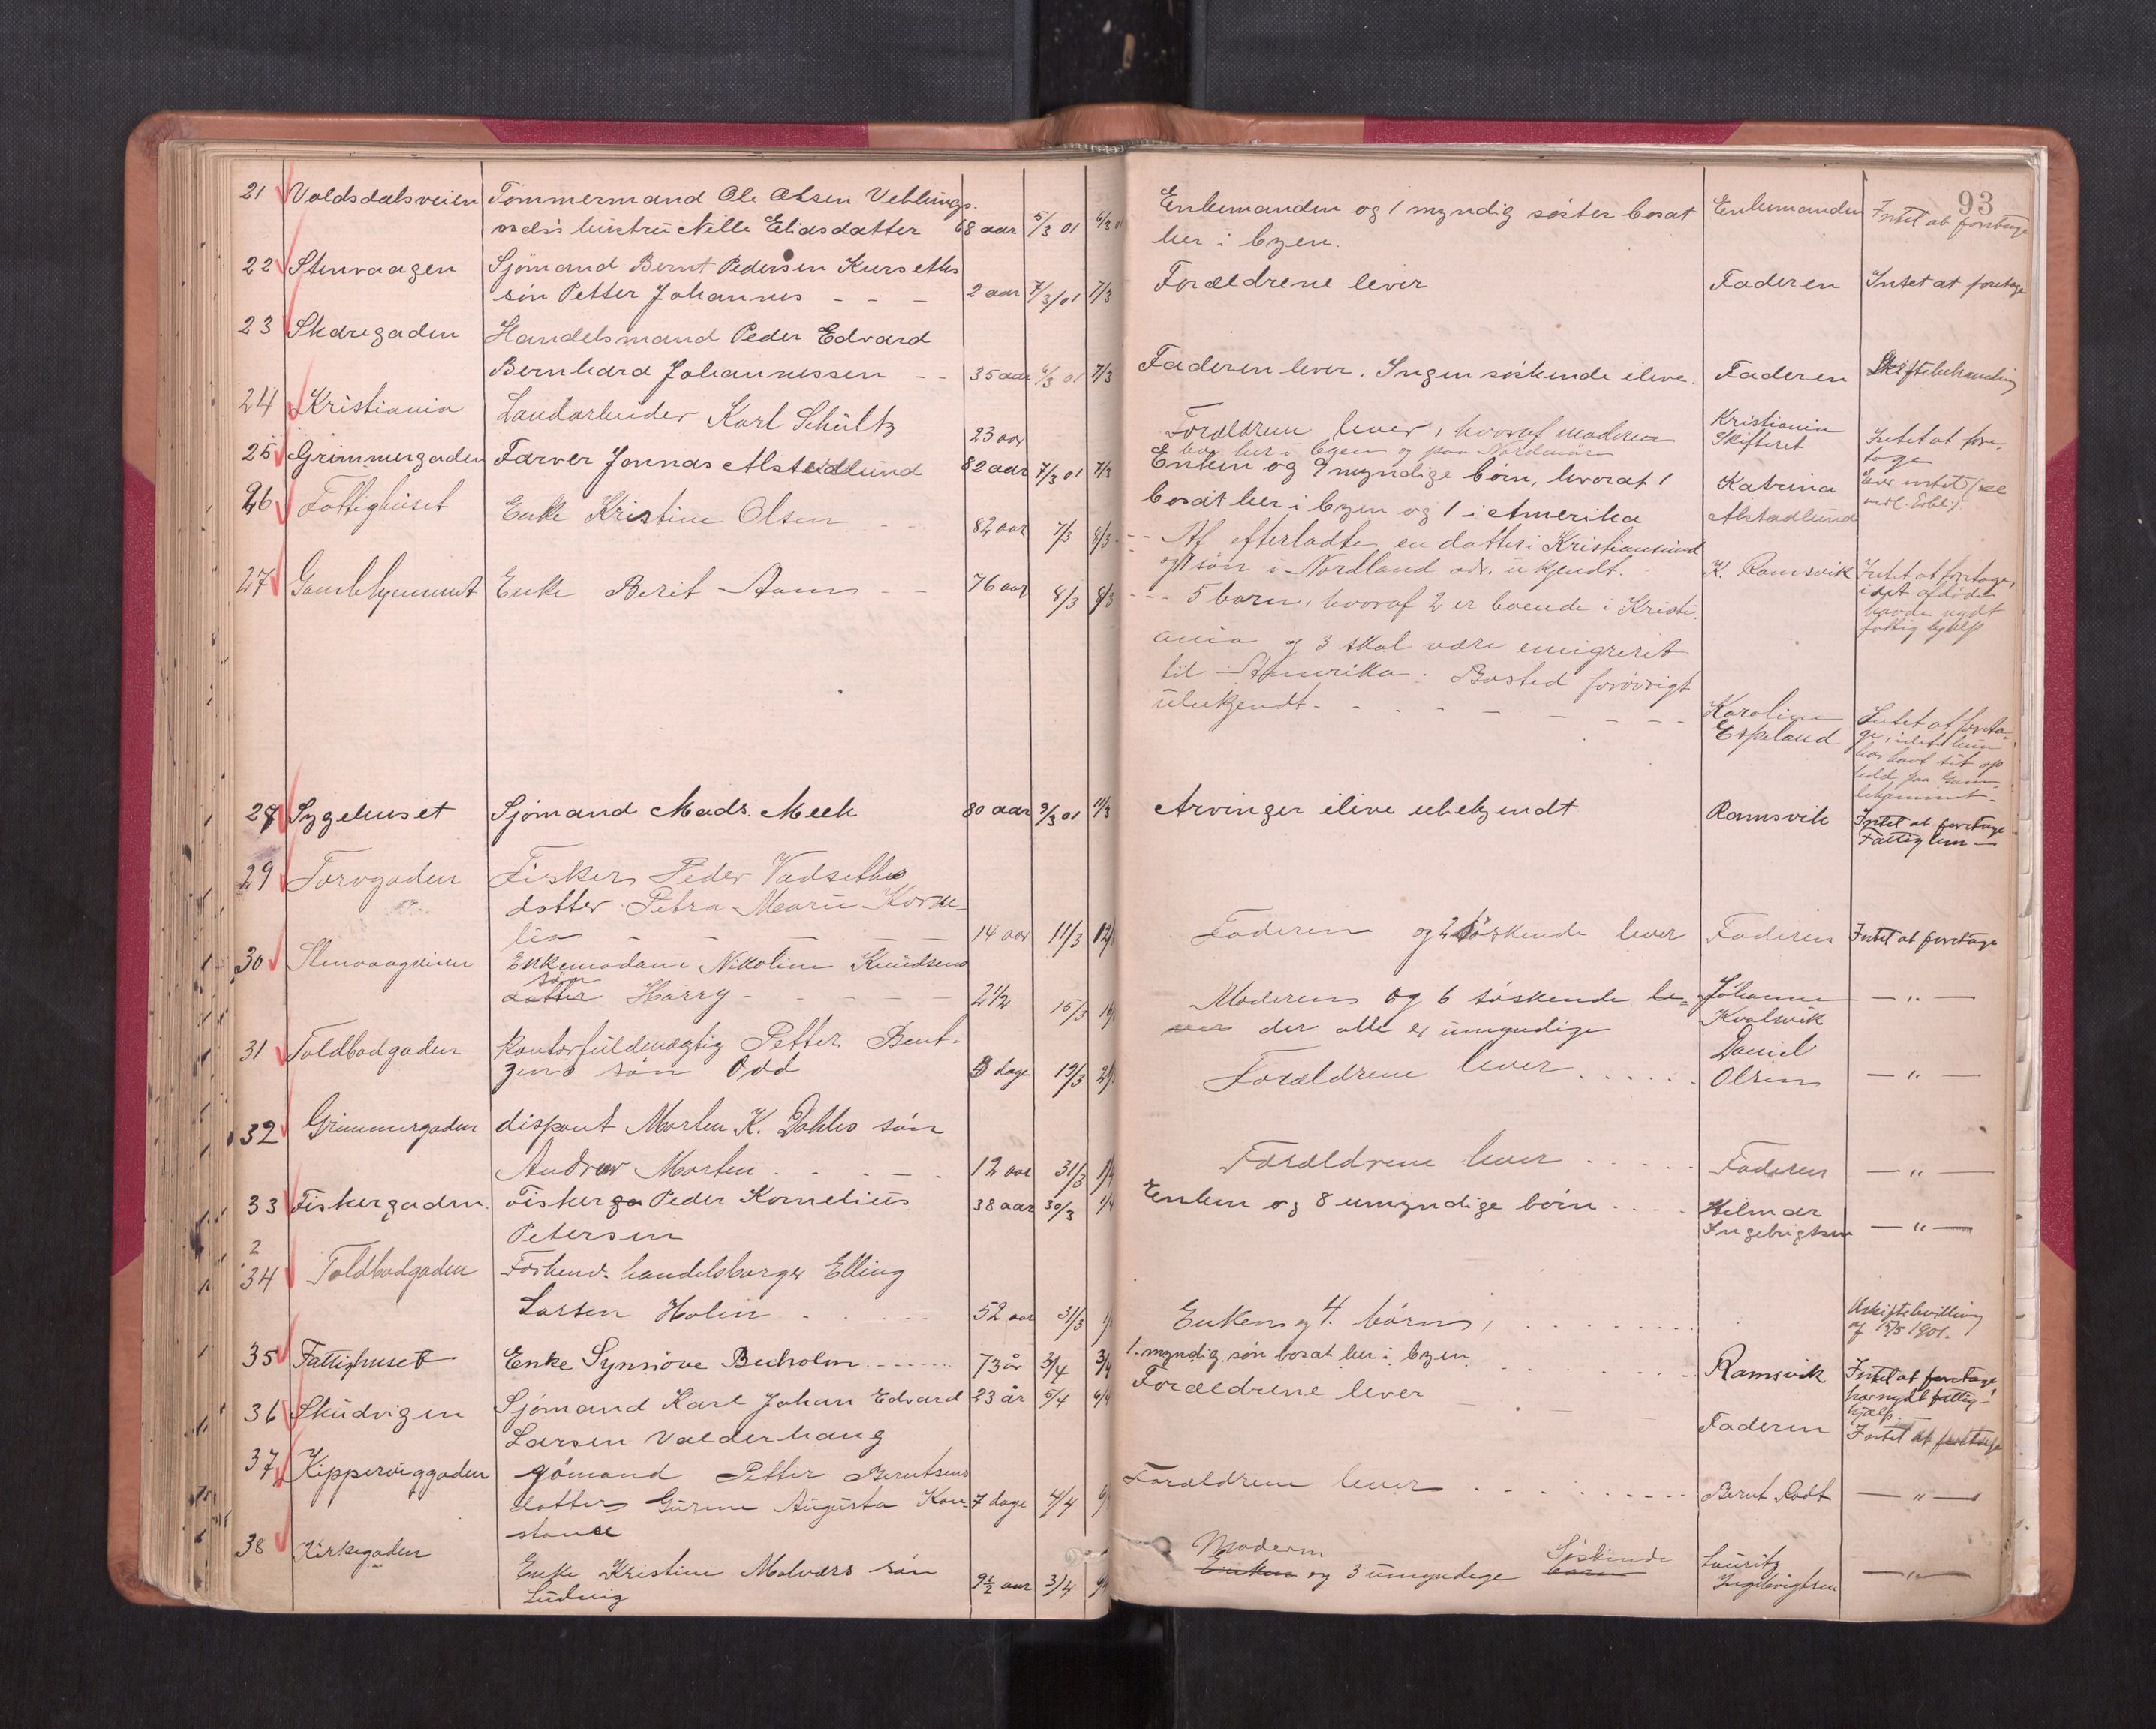 93
21 Voldsdalsveien Tømmermand Ole Olsen Veblungs-
næs's hustru Nille Eliasdatter 68 aar 5/3 01 6/3 01 Enkemanden og 1 myndig søster bosat Enkemanden Intet at foretage
her i byen.
22 Stenvaagen Sjømand Bernt Pedersen Kurseths
søn Petter Johannes - - - 2 aar 7/3 01 7/3 Forældrene lever Faderen Intet at foretage
23 Skaregaden Handelsmand Peder Edvard
Bernhard Johannessen - - 35 aar 6/3 01 7/3 Faderen lever. Ingen søskende ilive. Faderen Skiftebehandling
24 Kristiania Landarbeider Karl Schültz 23 aar Forældrene lever, hvoraf moderen Kristiania Skifteret Intet at fore-
tage
bor her i byen og paa Nordmøre
25 Grimmergaden Farver Jonnas Alstadlund 82 aar 7/3 01 7/3 Enken og 9 myndige børn, hvoraf 1 Katrina
bosat her i byen og 1 i Amerika Alstadlund
26 Fattighuset Enke Kristine Olsen - - 82 aar 7/3 8/3 - - Af efterladte en datter i Kristiansund
og 1 søn i Nordland adr. ukjendt. K. Ramsvik Intet at foretage,
idet afdøde
havde nydt
fattighjælp
27 Gamlehjemmet Enke Berit Aam - - 76 aar 8/3 8/3 - - - 5 børn, hvoraf 2 er boende i Kristi-
ania og 3 skal være emigreret
til Amerika. Bosted forøvrigt
ubekjendt - - - - - - Karoline
Espeland Intet at foreta-
ge, idet hun
har havt sit op
hold paa Gam-
lehjemmet.
28 Sygehuset Sjømand Mads. Meek 80 aar 9/3 01 11/3 Arvinger ilive ubekjendt Ramsvik Intet at foretage
Fattiglem -
29 Torvgaden Fisker Peder Vadseths
datter Petra Marie Korne-
lia - - - - 14 aar 11/3 12/ Faderen og 2 søskende lever Faderen Intet at foretage
30 Stenvaagveien Enkemadam Nikoline Knudsens
søn
datter Harry - - - - 2 1/2 15/3 16/ Moderen og 6 søskende le- Johanne
ver der alle er umyndige Kvalsvik - " -
31 Toldbodgaden Kontorfuldmægtig Petter Bent-
zens søn Odd 8 dage 19/3 2/ Forældrene lever . . . . . Daniel
Olsen - " -
32 Grimmergaden dispont Morten K. Dahles søn
Andrew Morten . . - - 12 aar 31/3 1/4 Forældrene lever . . . . . Faderen - " -
33 Fiskergaden. Fisker Peder Kornelius
Petersen 38 aar 30/3 1/4 Enken og 8 umyndige børn . . . . Hilmar
Ingebrigtsen - " -
2
34 Toldbodgaden Forhenv. handelsborger Elling
Larsen Holen . . . . . 52 aar 31/3 1/ Enken og 4 børn, . . . . . . . Uskiftebevilling
af 15/5 1901.
35 Fattighuset Enke Synnøve Buholm . . . . . 73 år 3/4 3/4 1 myndig søn bosat her i byen . . . . Ramsvik Intet at foretage
har nydt fattig-
hjælp
36 Skudvigen Sjømand Karl Johan Edvard
Larsen Valderhaug 23 år 5/4 6/4 Forældrene lever - - - Faderen Intet at foretage
37 Kipperviggaden Sjømand Petter Berntsens
datter Gurine Augusta Kon-
stanse 7 dage 4/4 6/ Forældrene lever . . . . . . . Bernt Rødt - " -
38 Kirkegaden Enke Kristine Molværs søn
Ludvig 9 1/2 aar 3/4 9/ Moderen Søskende
Enken og 3 umyndige børn Lauritz
Ingebrigtsen - " -